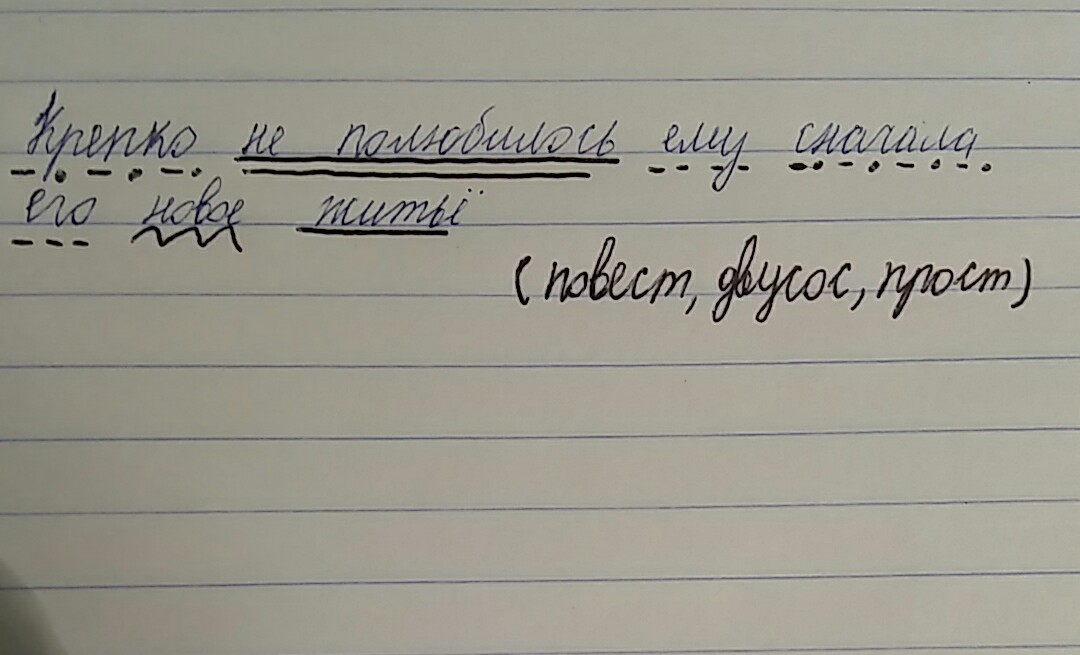 Крепко не полюбилось ему сначала
его новое житьё
(повест, двусос, прост)